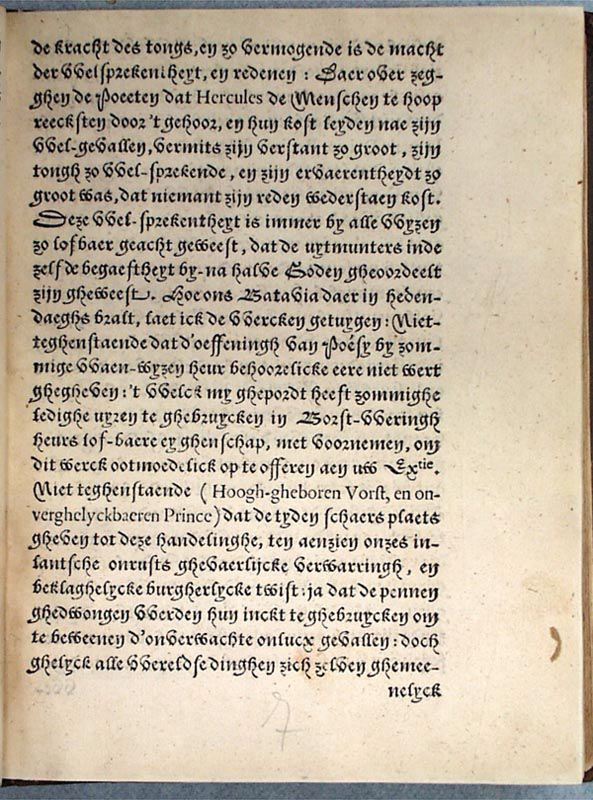 de kracht des tongs, en zo vermogende is de macht
der VVelsprekentheyt, en redenen : Daer over zeg-
ghen de Poeeten dat Hercules de Menschen te hoop
reecksten door 't gehoor, en hun kost leyden nae zijn
VVel-gevallen, vermits zijn verstant zo groot, zijn
tongh zo VVel-sprekende, en zijn ervaerentheydt zo
groot was, dat niemant zijn reden wederstaen kost.
Deze VVel-sprekentheyt is immer by alle VVyzen
zo lofbaer geacht geweest, dat de uytmunters inde
zelfde begaeftheyt by-na halve Goden gheoordeelt
zijn gheweest. Hoe ons Batavia daer in heden-
daeghs bralt, laet ick de VVercken getuygen: Niet-
teghenstaende dat d'oeffeningh van Poësy by zom-
mige VVaen-wyzen heur behoorelicke eere niet wert
ghegheven: 't VVelck my ghepordt heeft zommighe
ledighe uyren te ghebruycken in Borst-VVeringh
heurs lof-baere eyghenschap, met voornemen, om
dit werck ootmoedelick op te offeren aen uw Extie.
Niet teghenstaende ( Hoogh-gheboren Vorst, en on-
verghelyckbaeren Prince) dat de tyden schaers plaets
gheven tot deze handelinghe, ten aenzien onzes in-
lantsche onrusts ghevaerlijcke verwarringh, en
beklaghelycke burgherlycke twist: ja dat de pennen
ghedwongen VVerden hun inckt te ghebruycken om
te beweenen d'onverwachte onlucx gevallen: doch
ghelyck alle VVereldse dinghen zich zelven ghemee-
nelyck
7